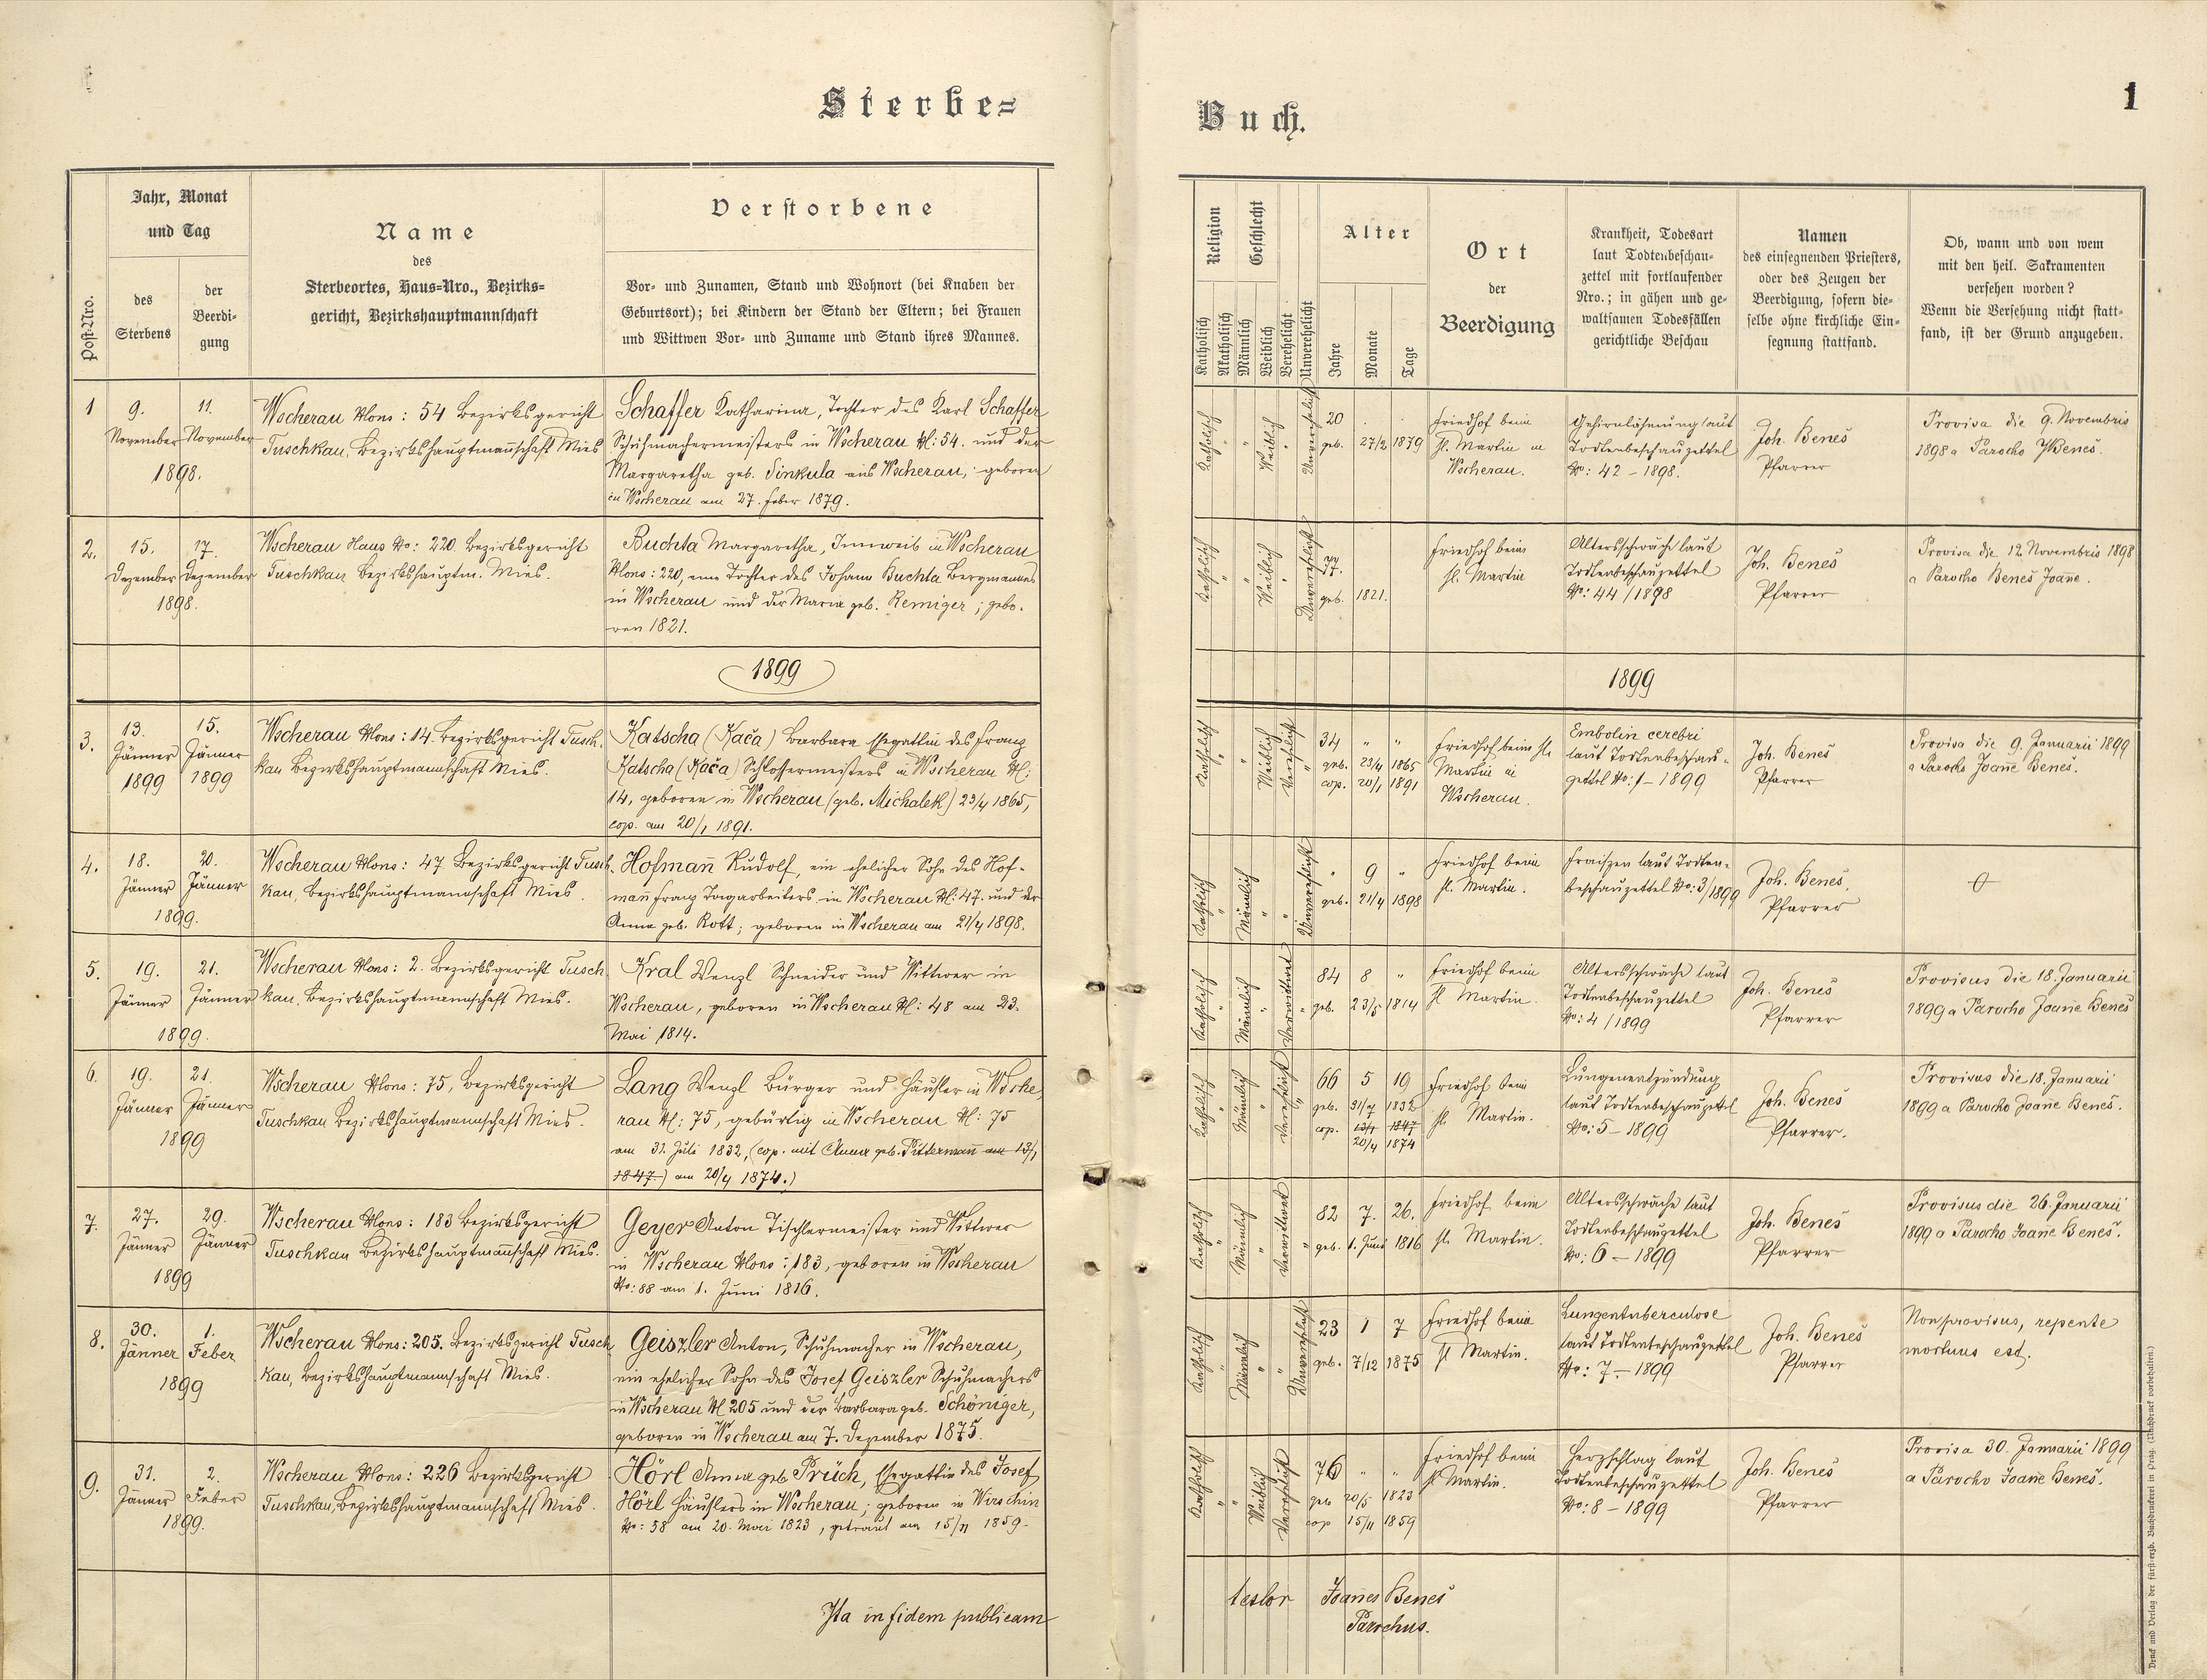 Sterbe=
Buch.
1
Post-Nro.
Jahr, Monat
und Tag
des
Sterbens
der
Beerdi-
gung
Name
des
Sterbeortes, Haus-Nro., Bezirks-
gericht, Bezirkshauptmannschaft
Verstorbene
Vor- und Zunamen, Stand und Wohnort (bei Knaben der
Geburtsort); bei Kindern der Stand der Eltern; bei Frauen
und Wittwen Vor- und Zuname und Stand ihres Mannes.
Religion
Katholisch
Akatholisch
Geschlecht
Männlich
Weiblich
Verehelicht
Unverehelicht
Alter
Jahre
Monate
Tage
Ort
der
Beerdigung
Krankheit, Todesart
laut Todtenbeschau-
zettel mit fortlaufender
Nro.; in gähen und ge-
waltsamen Todesfällen
gerichtliche Beschau
Namen
des einsegnenden Priesters,
oder des Zeugen der
Beerdigung, sofern die-
selbe ohne kirchliche Ein-
segnung stattfand.
Ob, wann und von wem
mit den heil. Sakramenten
versehen worden?
Wenn die Versehung nicht statt-
fand, ist der Grund anzugeben.
1
9.
November
11.
November
1898.
Wscherau Nons: 54 Bezirksgericht
Tuschkau, Bezirkshauptmannschaft Mies
Schaffer Katharina, Tochter des Karl Schaffer
Schuhmachermeisters in Wscherau N: 54. und der
Margaretha geb. Sinkula aus Wscherau; geboren
in Wscherau am 27. Feber 1879.
Katholisch
Weiblich
Unverehelicht
20
geb. 27/2 1879
Friedhof beim
hl. Martin in
Wscherau.
Gehirnlähmung laut
Todtenbeschauzettel
No: 42 – 1898.
Joh. Beneš
Pfarrer
Provisa die 9. Novembris
1898 a Parocho J Beneš.
2.
15.
Dezember
17.
Dezember
1898.
Wscherau Haus No: 220 Bezirksgericht
Tuschkau Bezirkshauptm. Mies.
Buchta Margaretha, Innweib in Wscherau
Nons: 220, eine Tochter des Johann Buchta Bergmannes
in Wscherau und der Maria geb. Remiger; gebo-
ren 1821.
Katholisch
Weiblich
Unverehelicht
77.
geb. 1821.
Friedhof beim
hl. Martin
Altersschwäche laut
Todtenbeschauzettel
No: 44/1898
Joh. Beneš
Pfarrer
Provisa die 12. Novembris 1898
a Parocho Beneš Joanne.
1899
1899
3.
13.
Jänner
1899
15.
Jänner
1899
Wscherau Nons: 14. Bezirksgericht Tusch-
kau Bezirkshauptmannschaft Mies.
Katscha (Kača) Barbara Ehegattin des Franz
Katscha (Kača) Schlossermeisters in Wscherau N:
14, geboren in Wscherau (geb. Michalek) 23/4 1865,
cop. am 20/1 1891.
Katholisch
Weiblich
Verehelicht
34 " "
geb. 23/4 1865
cop. 20/1 1891
Friedhof beim hl.
Martin in
Wscherau.
Embolin cerebri
laut Todtenbeschau-
zettel No: 1 – 1899
Joh. Beneš
Pfarrer
Provisa die 9. Januarii 1899
a Parocho Joanne Beneš.
4.
18.
Jänner
20.
Jänner
1899.
Wscherau Nons: 47 Bezirksgericht Tusch-
kau, Bezirkshauptmannschaft Mies.
Hofmann Rudolf, ein ehelicher Sohn des Hof-
mann Franz Tagarbeiters in Wscherau N: 47. und der
Anna geb. Rott; geboren in Wscherau am 21/4 1898.
Katholisch
Männlich
Unverehelicht
" 9 "
geb. 21/4 1898
Friedhof beim
hl. Martin.
Fraisen laut Todten-
beschauzettel No: 3/1899
Joh. Beneš.
Pfarrer
5.
19.
Jänner
21.
Jänner
1899.
Wscherau Nons: 2. Bezirksgericht Tusch-
kau, Bezirkshauptmannschaft Mies.
Kral Wenzl Schneider und Wittwer in
Wscherau, geboren in Wscherau N: 48 am 23.
Mai 1814.
Katholisch
Männlich
Verwittwet
84 8 "
geb. 23/5 1814
Friedhof beim
hl. Martin.
Altersschwäche laut
Todtenbeschauzettel
No: 4/1899
Joh. Beneš
Pfarrer
Provisus die 18. Januarii
1899 a Parocho Joanne Beneš
6.
19.
Jänner
21.
Jänner
1899
Wscherau Nons: 75, Bezirksgericht
Tuschkau Bezirkshauptmannschaft Mies.
Lang Wenzl Bürger und Häusler in Wsche-
rau N: 75, gebürtig in Wscherau N: 75
am 31. Juli 1832, (cop. mit Anna geb. Pittermann am 13/1
1847.) am 20/4 1874.)
Katholisch
Männlich
Verehelicht
66 5 19
geb. 31/7 1832
cop. 13/1 1847
20/4 1874
Friedhof beim
hl. Martin.
Lungenentzündung
laut Todtenbeschauzettel
No: 5 – 1899
Joh. Beneš
Pfarrer.
Provisus die 18. Januarii
1899 a Parocho Joanne Beneš.
7.
27.
Jänner
29.
Jänner
1899
Wscherau Nons: 183 Bezirksgericht
Tuschkau Bezirkshauptmannschaft Mies.
Geyer Anton Tischlermeister und Wittwer
in Wscherau Nons: 183, geboren in Wscherau
No: 88 am 1. Juni 1816.
Katholisch
Männlich
Verwittwet
82 7. 26.
geb. 1. Juni 1816
Friedhof beim
hl. Martin.
Altersschwäche laut
Todtenbeschauzettel
No: 6 – 1899
Joh. Beneš
Pfarrer
Provisus die 26. Januarii
1899 a Parocho Joanne Beneš.
8.
30.
Jänner
1.
Feber
1899
Wscherau Nons: 205. Bezirksgericht Tusch-
kau, Bezirkshauptmannschaft Mies.
Geiszler Anton, Schuhmacher in Wscherau,
ein ehelicher Sohn des Josef Geiszler Schuhmachers
in Wscherau N 205 und der Barbara geb. Schöniger,
geboren in Wscherau am 7. Dezember 1875.
Katholisch
Männlich
Unverehelicht
23 1 7
geb. 7/12 1875
Friedhof beim
hl Martin.
Lungentuberculose
laut Todtenbeschauzettel
No: 7. – 1899
Joh. Beneš
Pfarrer
Non provisus, repente
mortuus est.
9.
31.
Jänner
2.
Feber
1899.
Wscherau Nons: 226 Bezirksgericht
Tuschkau, Bezirkshauptmannschaft Mies.
Hörl Anna geb. Prüch, Ehegattin des Josef
Hörl Häuslers in Wscherau; geboren in Wirschin
No: 58 am 20. Mai 1823, getraut am 15/11 1859.
Katholisch
Weiblich
Verehelicht
76 " "
geb 20/5 1823
cop 15/11 1859
Friedhof beim
hl Martin.
Herzschlag laut
Todtenbeschauzettel
No: 8 – 1899
Joh. Beneš
Pfarrer
Provisa 30. Januarii 1899
a Parocho Joanne Beneš.
Ita in fidem publicam
testor Joannes Beneš
Parochus.
Druck und Verlag der fürst-erzb. Buchdruckerei in Prag. (Nachdruck vorbehalten.)